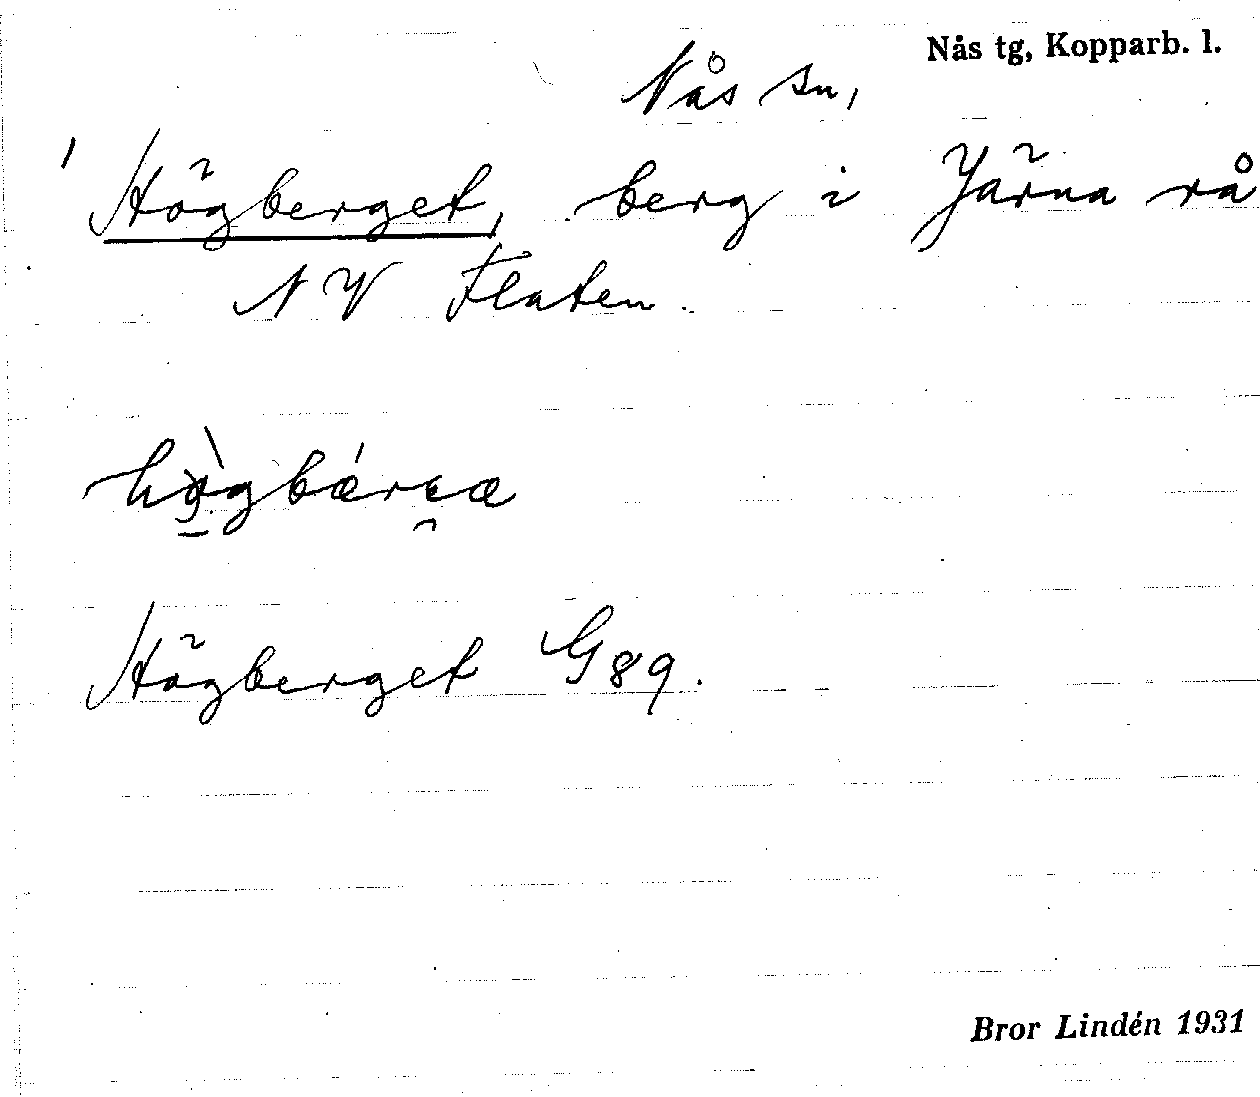 Nås tg, Kopparb. l.
Nås sn,
Högberget, berg i Järna rå
NV Flaten.
Högberget G 89.
Bror Lindén 1931